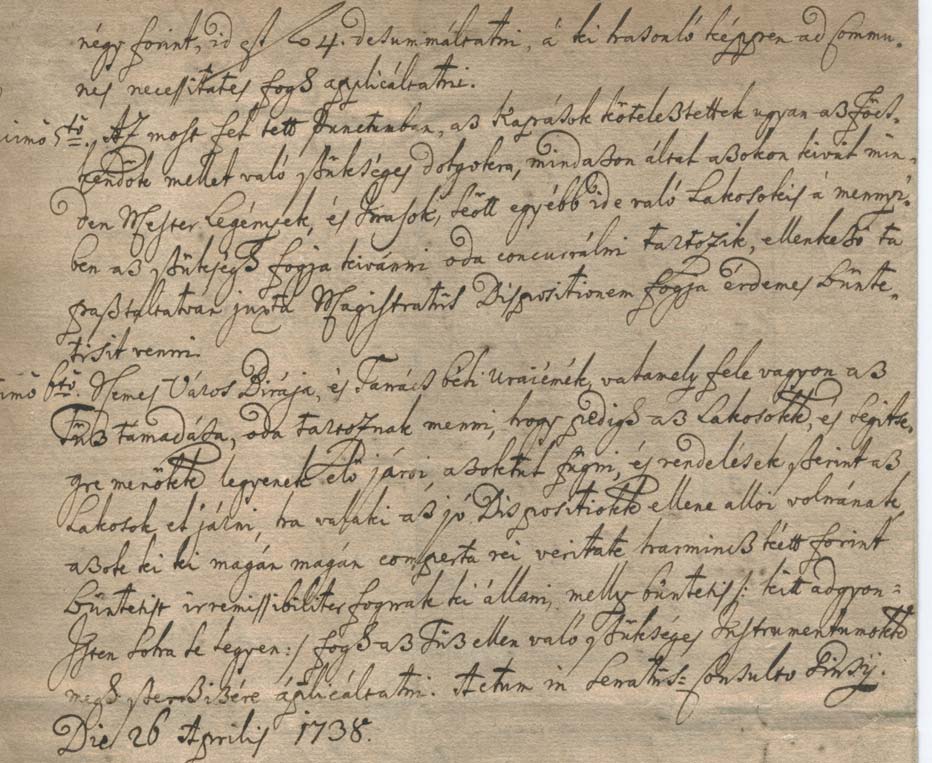 négy forint, id est 4. desummáltatni, á ki hasonló képpen ad Commu-
nes necessitates fogh applicáltatni.
5tö. Az most fel tett Punctumban, az Káprások köteleztettek ugyan az
mellet való szükséges dolgokra, mindazon által azokon kivül min-
den Mester Legények, és Inasok, söt egyébb ide való Lakosokis á mennyi-
ben az szükségh fogja kivánni oda concurrálni tartozik, ellenkezö ta
pasztaltatván juxta Magistratus Dispositionem fogja érdemes bünte-
tisit venni.
6tö. Nemes Város Birája, és Tanács béli Uraiémék, valamely fele vagyon az
Tüz támadása, oda tartoznak menni, hogy pedigh az Lakosokk, és segitse-
gre menökk legyenek Elö járói, azoktul függni, és rendelések szerint az
Lakosok el járni, ha valaki az jó Dispositiokk ellene állói volnának,
azok ki ki magán magán comperta rei veritate harmincz két forint
büntetist irremissibiliter fognak ki állani, melly büntetis /: kitt adgyon
Isten soha ne legyen :/ fogh az Tüz ellen való szükséges Instrumentumokk
megh szerzisére ápplicáltatni. Actum in Senatus Consulto
Die 26 Aprilis 1738.